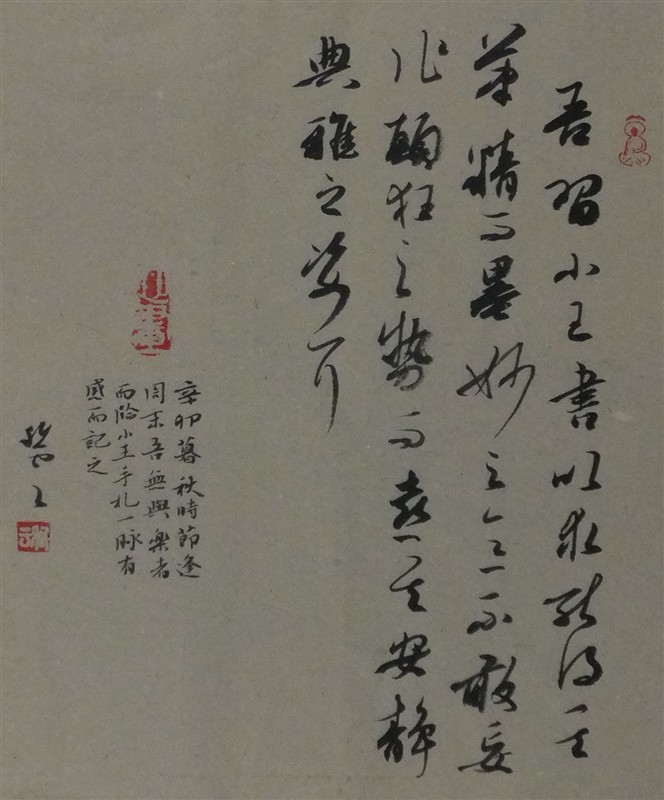 吾習小王書以求能得其
筆精而墨妙之不敢妄
作顛狂之勢而其安靜
典雅之姿耳
辛卯暮秋時節逢
周末吾無與樂者
而臨小王手札一脉有
感而記之